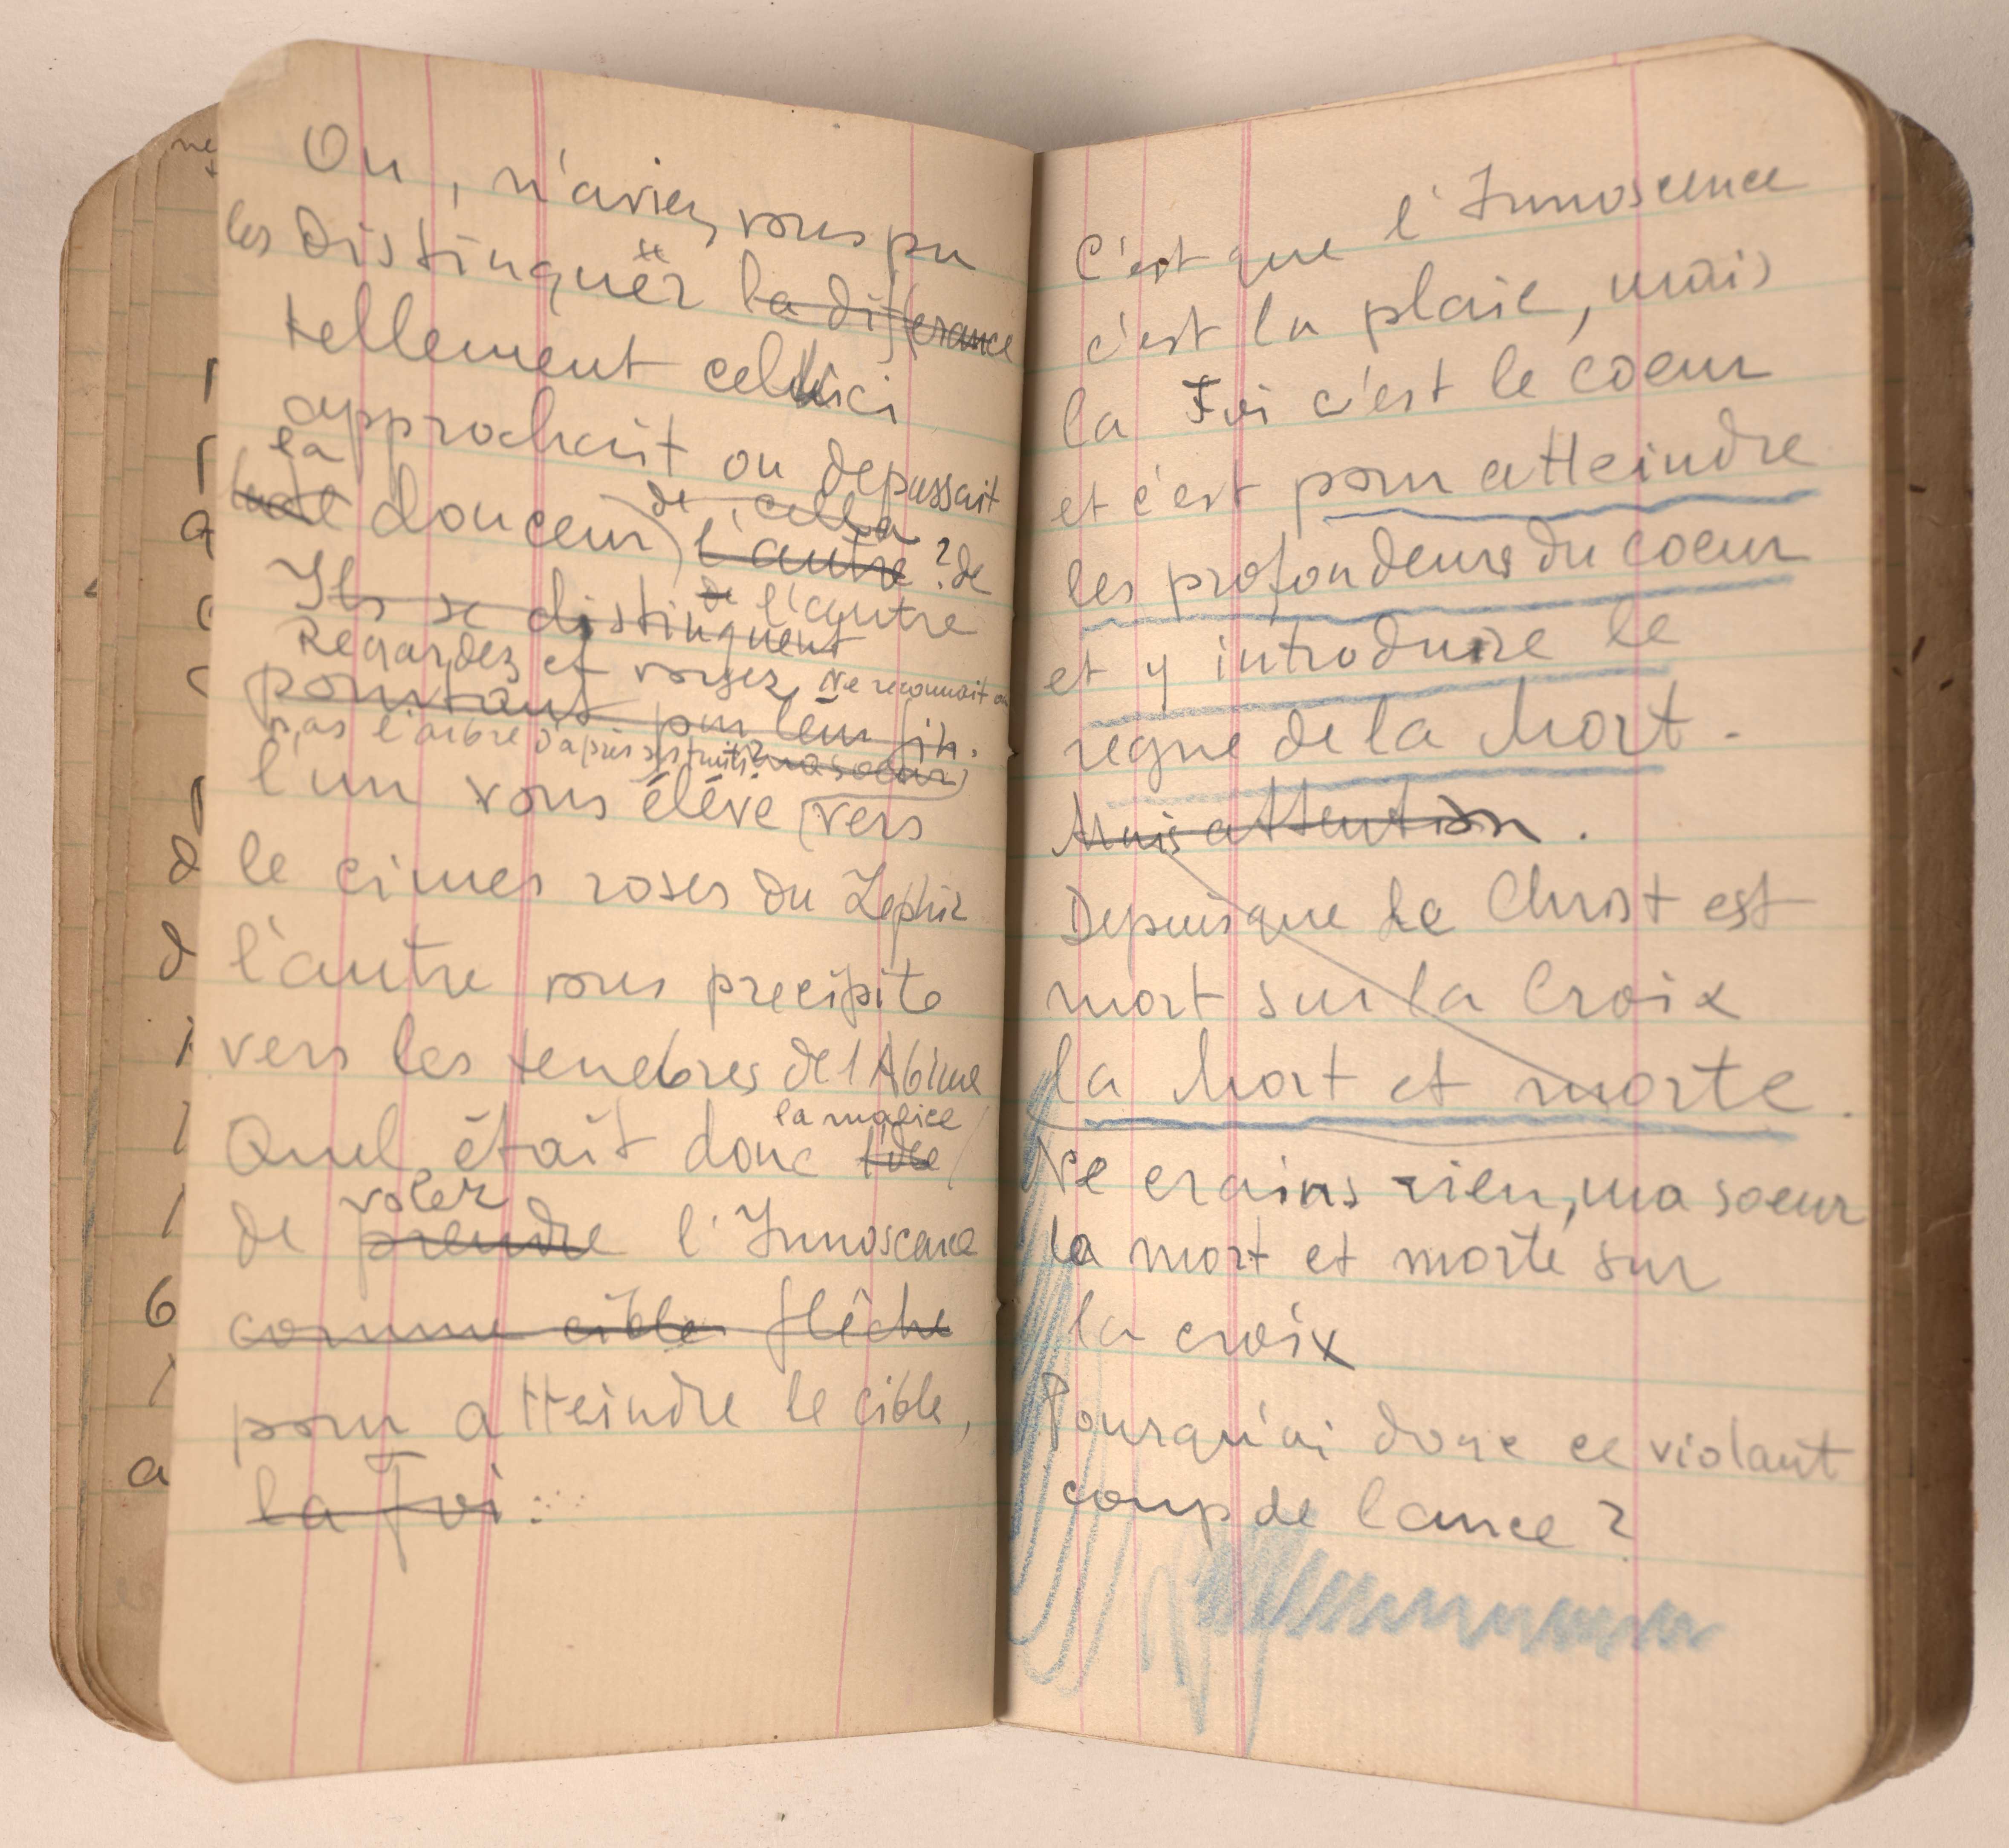 On, n'aviez vous pu
les distinguer la diferance
tellement celuici
approchait ou depassait
la
douceur de cella
l'autre ? de
Ils se distinguent de l'autre
Regardez et voyez, Ne reconnait on
pourtant par leur fin.
pas l'arbre d'après ses fruits? ma soeur
l'un vous élève vers
le cimes roses du Zephir
l'autre vous precipite
vers les tenebres de l'Abime
la malice
Quel était donc
voler
de prendre l'Innoscence
comme cible flêche
pour atteindre le cible,
la Foi
C'est que l'Innoscence
c'est la plaie, mais
la Foi c'est le coeur
et c'est pour atteindre
les profondeurs du coeur
et y introduire le
regne de la Mort.
Mais attention.
Depuisque Le Christ est
mort sur la Croix
la Mort et morte.
Ne crains rien, ma soeur
la mort et morte sur
la croix
Pourquoi donc ce violant
coup de lance ?